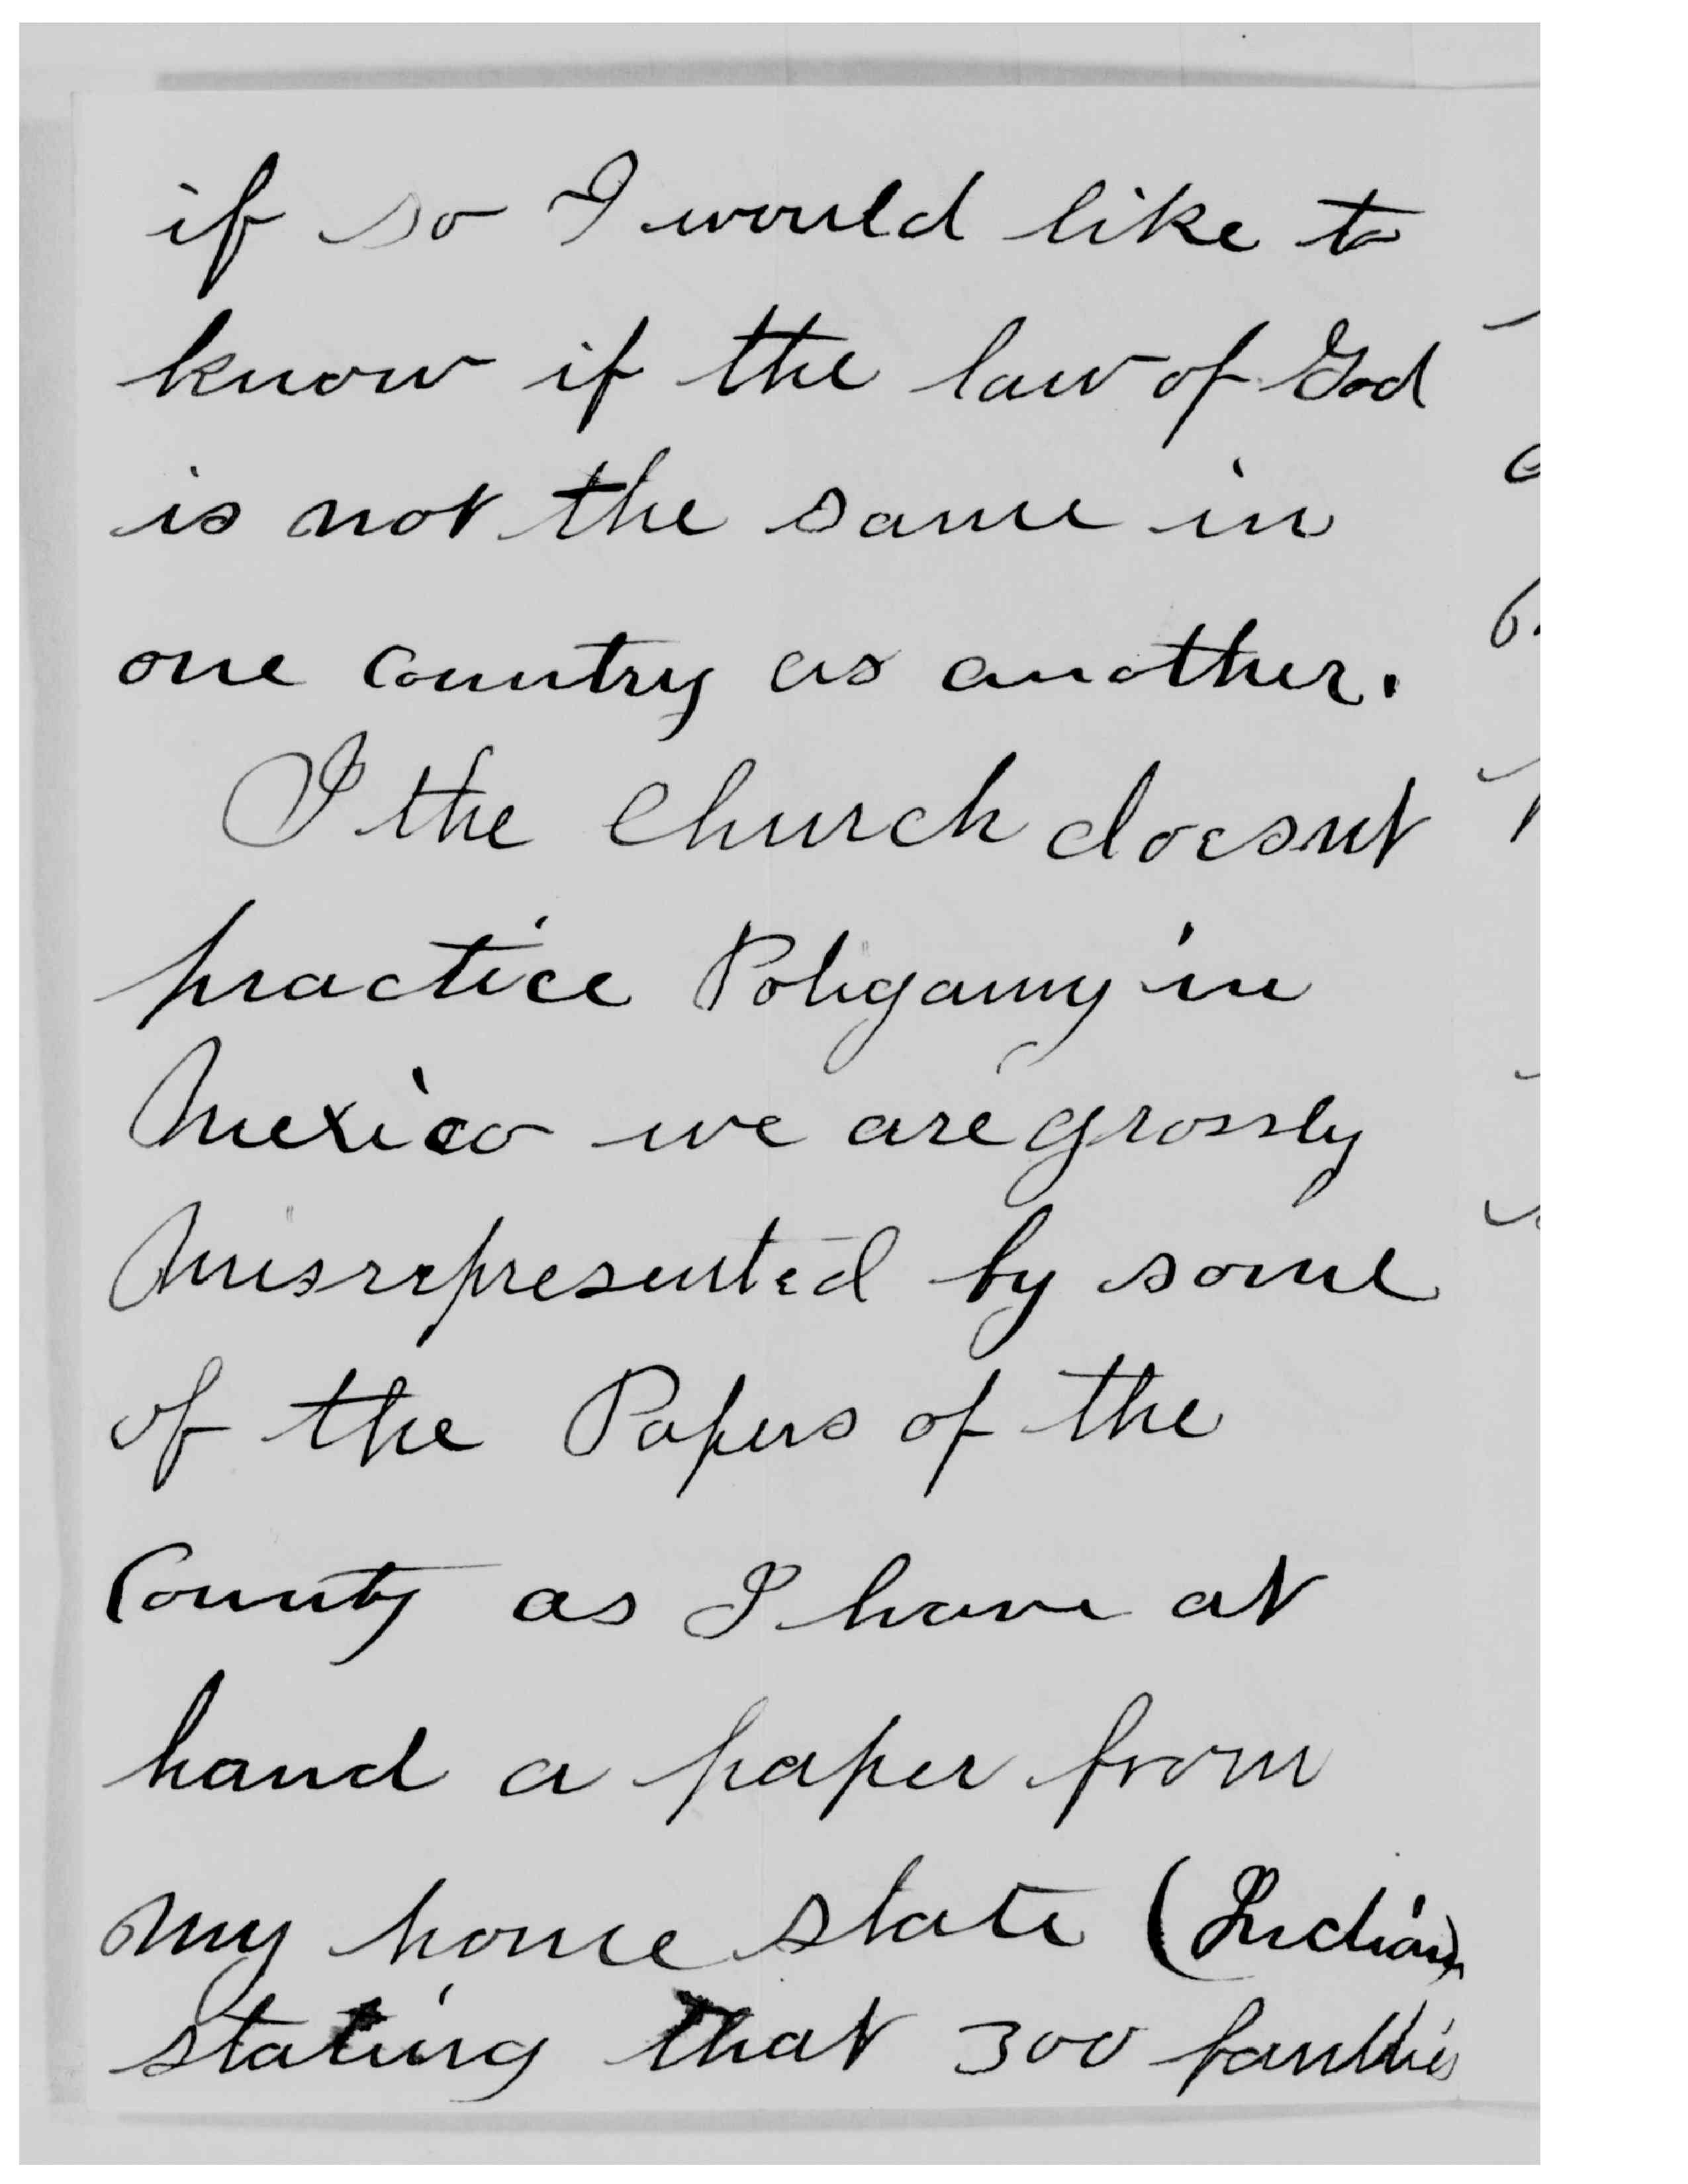 if so I would like to
know if the law of God
is not the same in
one country as another.
I the Church doesnt
practice Poligamy in
Mexico we are grossly
Misrepresented by some
of the Papers of the
County as I have at
hand a paper from
my home state (Indian)
stating that 300 families